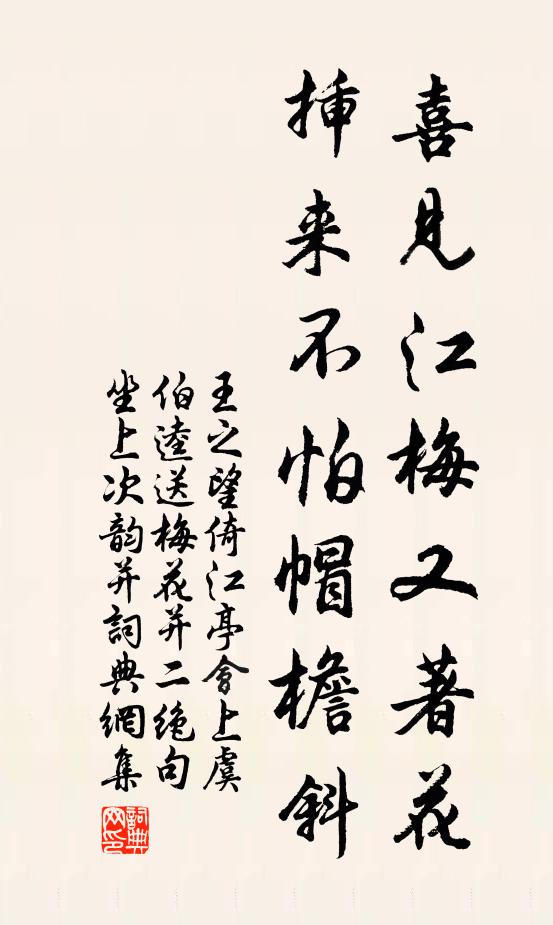 喜見江梅又著花
挿来不怕帽檐斜
王之望倚江亭會上虞
伯逵送梅花并二絶句
坐上次韵并詞典網集
詞典網印